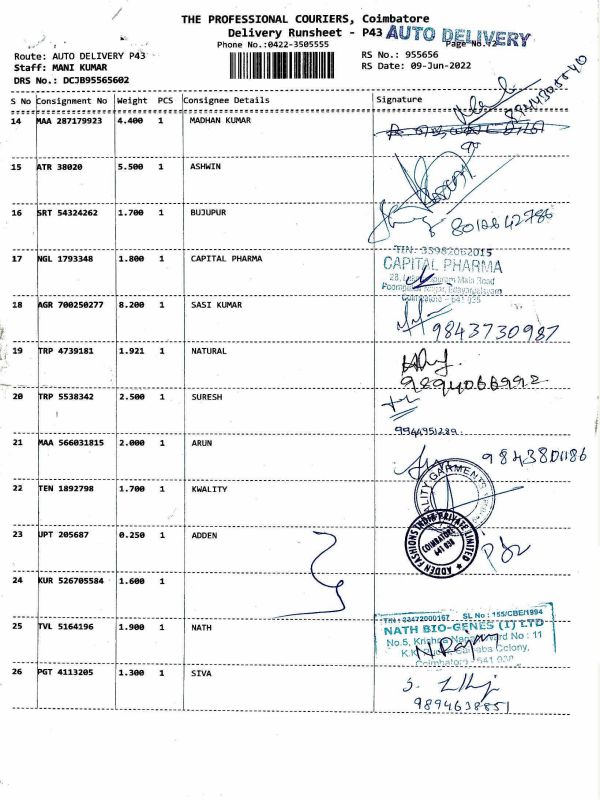 THE PROFESSIONAL COURIERS, Coimbatore
Delivery Runsheet - P43 AUTO DELIVERY
Phone No.:0422-3505555
Route: AUTO DELIVERY P43 RS No.: 955656
Staff: MANI KUMAR RS Date: 09-Jun-2022
DRS No.: DCJB95565602
S No Consignment No Weight PCS Consignee Details Signature
14 MAA 287179923 4.400 1 MADHAN KUMAR
15 ATR 38020 5.500 1 ASHWIN
16 SRT 54324262 1.700 1 BUJUPUR 8012642786
17 NGL 1793348 1.800 1 CAPITAL PHARMA
TIN: 33982062015
CAPITAL PHARMA
Coimbatore - 641 035
18 AGR 700250277 8.200 1 SASI KUMAR 9843730987
19 TRP 4739181 1.921 1 NATURAL
9894066992
20 TRP 5538342 2.500 1 SURESH
9944951289
21 MAA 566031815 2.000 1 ARUN 9843801186
22 TEN 1892798 1.700 1 KWALITY
GARMENTS
23 UPT 205687 0.250 1 ADDEN
ADDEN FASHIONS INDIA PRIVATE LIMITED
COIMBATORE
641 038
24 KUR 526705584 1.600 1
25 TVL 5164196 1.900 1 NATH
SL No : 155/CBE/1994
NATH BIO-GENES (I) LTD
No.5, Krishna Ward No : 11
Colony,
Coimbatore - 641 038
26 PGT 4113205 1.300 1 SIVA
9894638851